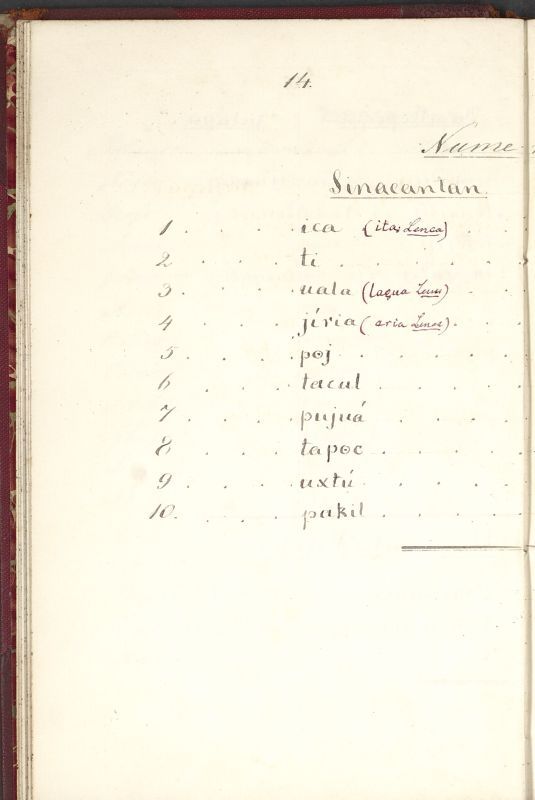 14.
Nume
Sinacantan.
1 . . . . ica (ita, Lenca) . .
2 . . . . ti . . . . .
3 . . . . uala (lagua Lenca) . .
4 . . . jíria (aria Lenca) . . .
5 . . . . poj . . . . .
6 . . . . tacul . . . .
7 . . . . pujuá . . . .
8 . . . . tapoc . . . .
9 . . . . uxtú . . . .
10. . . . pakil . . . .